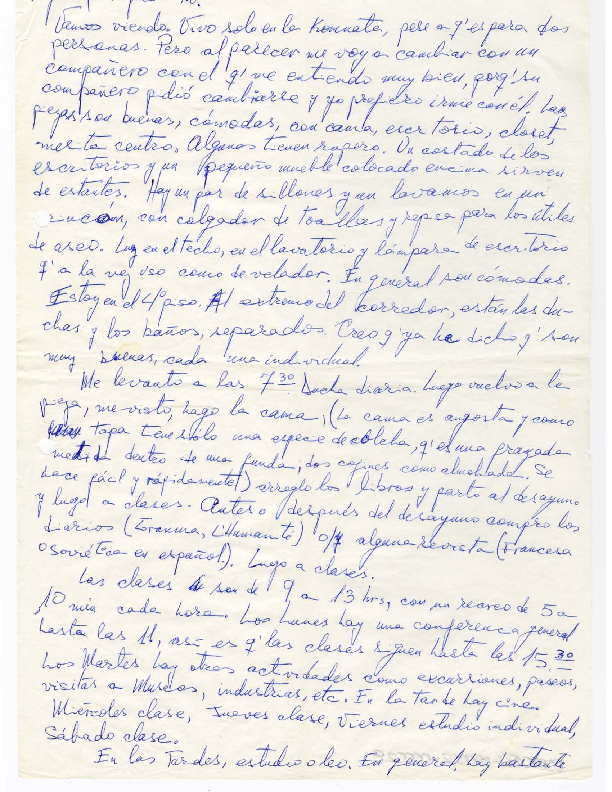 Vamos viendo. Vivo solo en la Komnata, pese a q' es para dos
personas. Pero al parecer me voy a cambiar con un
compañero con el q' me entiendo muy bien, porq' su
compañero pidió cambiarse y yo prefiero irme con él. Las
piezas son buenas, cómodas, con cama, escritorio, closet,
mesita centro. Algunos tienen ropero. Un costado de los
escritorios y un pequeño mueble colocado encima sirven
de estantes. Hay un par de sillones y un lavamos en un
rincon, con colgador de toallas y repisa para los útiles
de aseo. Luz en el techo, en el lavatorio y lámpara de escritorio
q' a la vez uso como de velador. En general son cómodas.
Estoy en el 4º piso. Al extremo del corredor, están las du-
chas y los baños, separados. Creo q' ya he dicho q' son
muy buenas, cada una individual.
Me levanto a las 7 30 Ducha diaria. Luego vuelvo a la
pieza, me visto, hago la cama, (la cama es angosta y como
tapa tiene solo una especie de colcha, q' es una frazada
metida dentro de una funda, dos cojines como almohada. Se
hace fácil y rápidamente) arreglo los libros y parto al desayuno
y luego a clases. Antes o después del desayuno compro los
diarios (Granma, L'Humanité) o/y alguna revista (francesa
o soviética en español). Luego a clases.
Las clases son de 9 a 13 hrs, con un recreo de 5 a
10 min cada hora. Los Lunes hay una conferencia general
hasta las 11, asi es q' las clases siguen hasta las 15 30
Los Martes hay otras actividades como excursiones, paseos,
visitas a Museos, industrias, etc. En la tarde hay cine.
Miércoles clase, Jueves clase, Viernes estudio individual,
Sábado clase.
En las Tardes, estudio o leo. En general, hay bastante